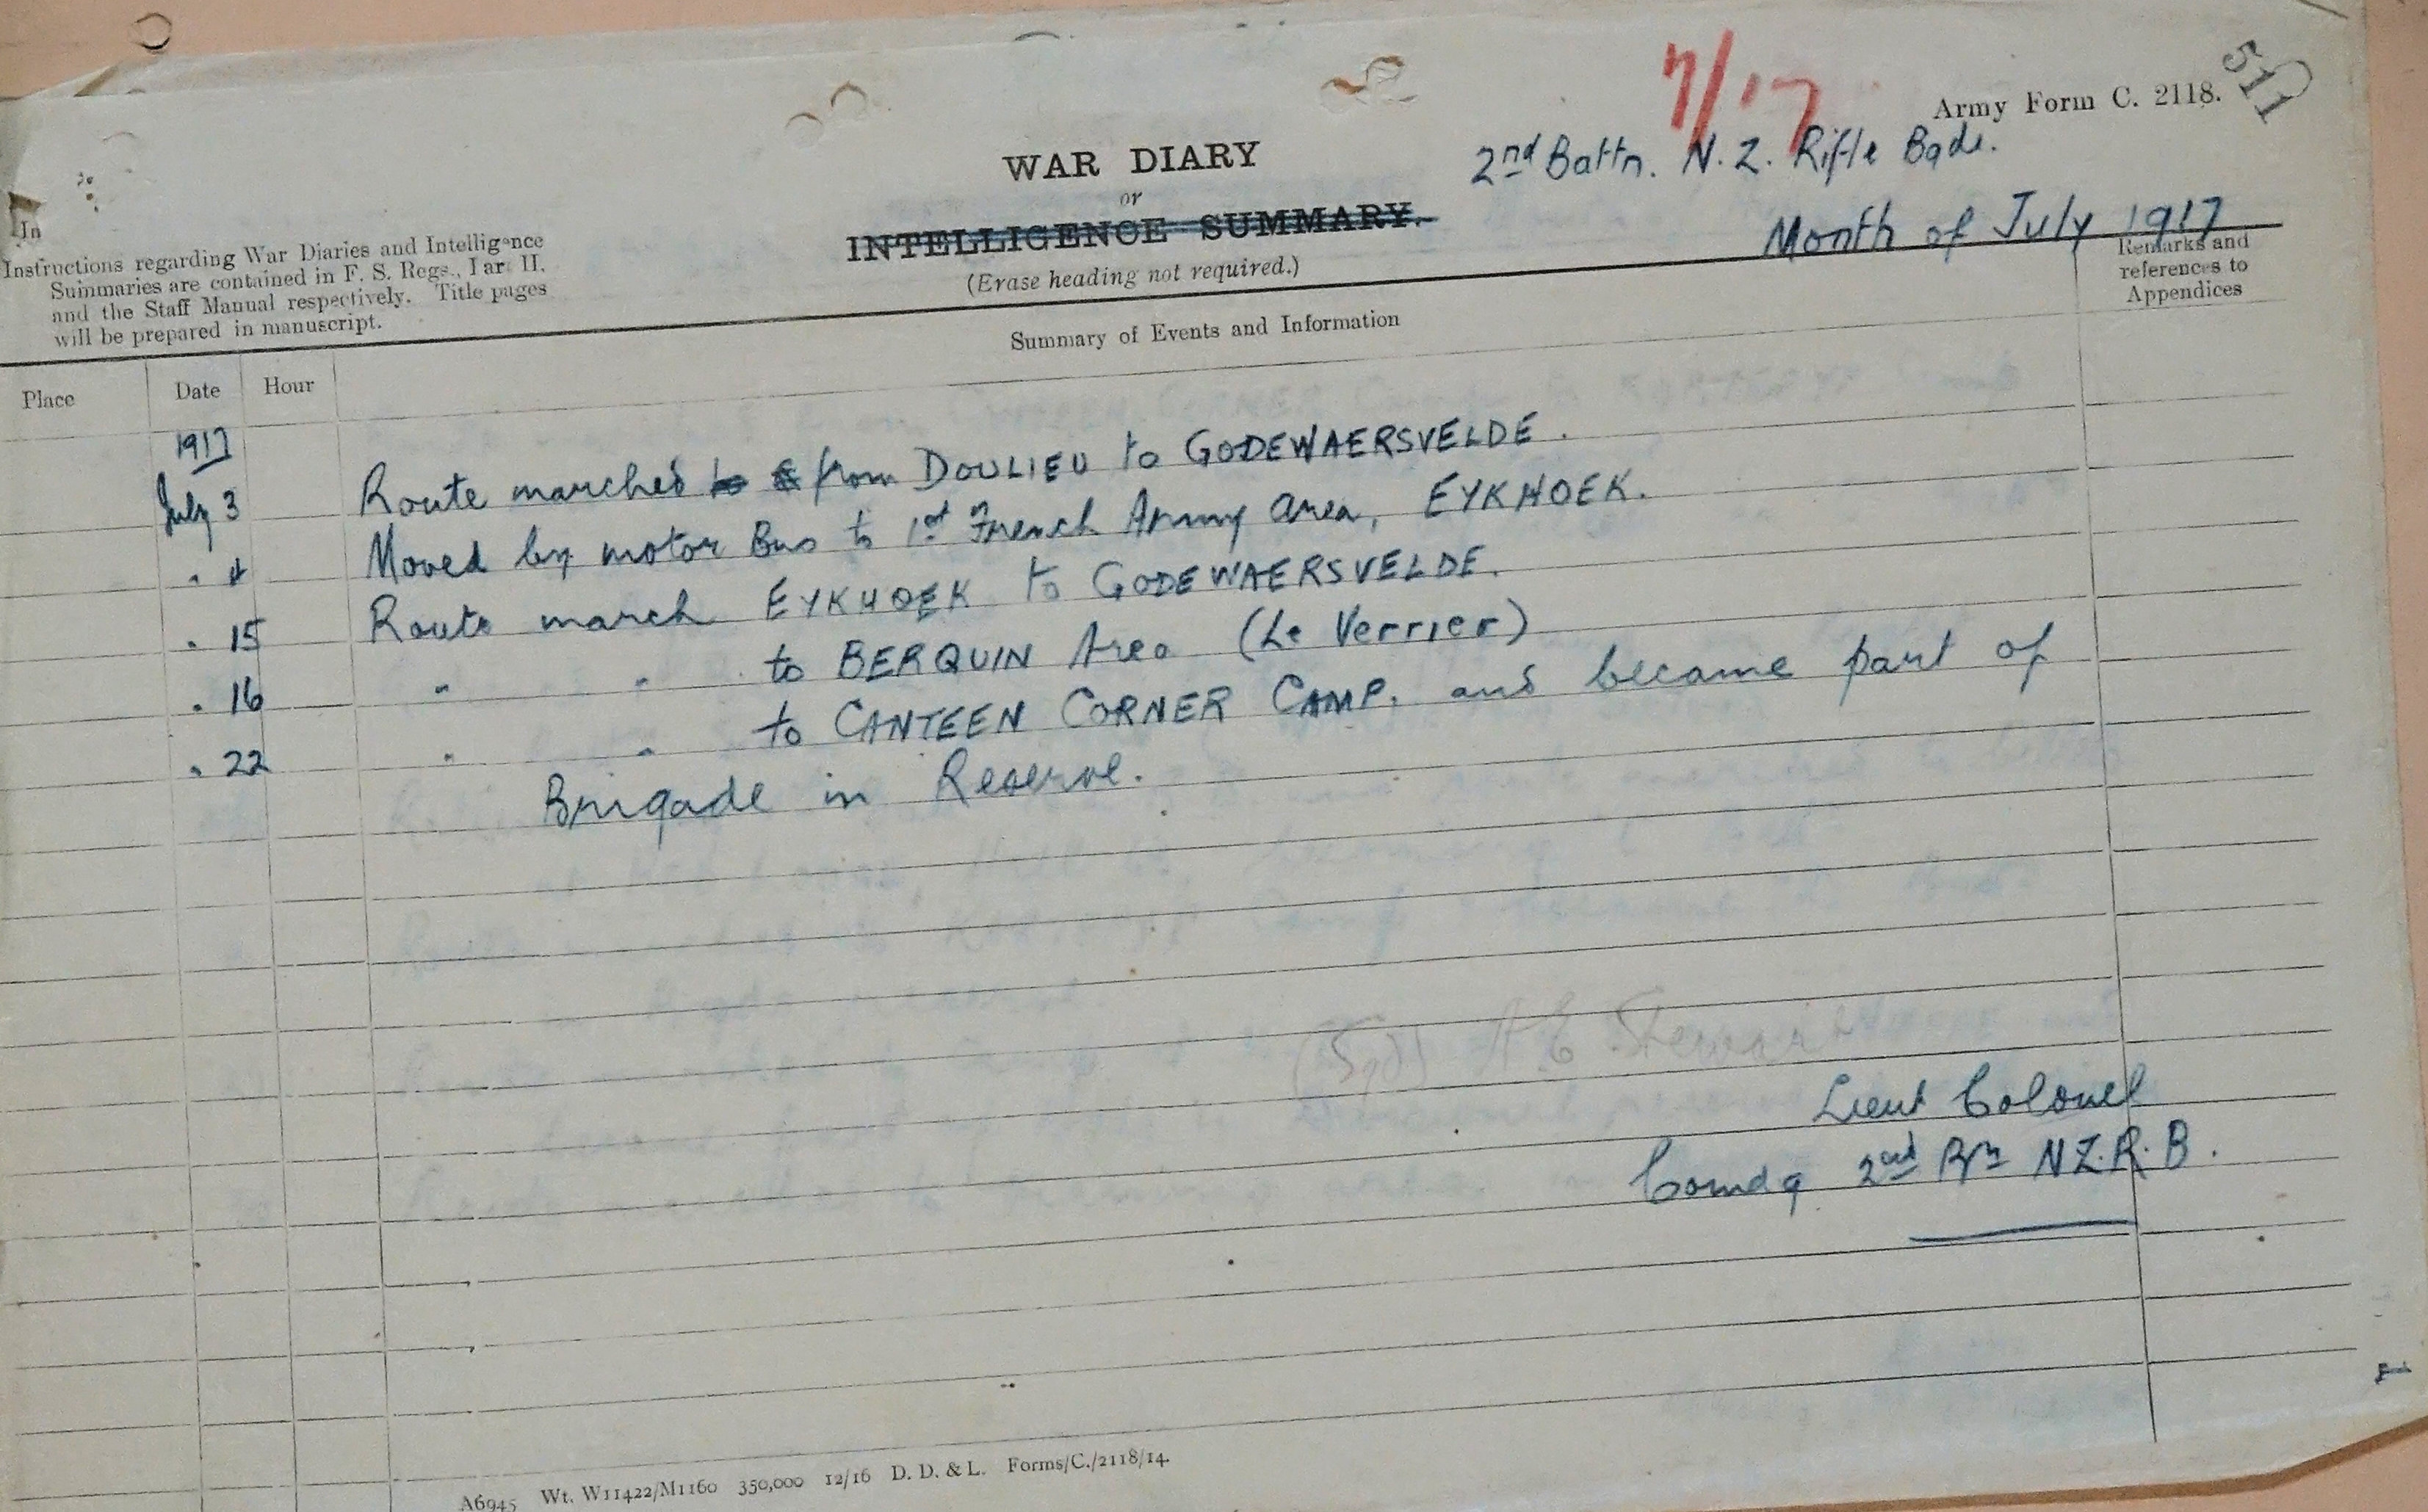 7/17
Army Form C. 2118.
511
2nd Battn. N. Z. Rifle Bgde.
Month of July 1917
WAR DIARY
or
INTELLIGENCE SUMMARY.
(Erase heading not required.)
In
Instructions regarding War Diaries and Intelligence
Summaries are contained in F. S. Regs., Part II.
and the Staff Manual respectively. Title pages
will be prepared in manuscript.
Remarks and
references to
Appendices
Summary of Events and Information
Place Date Hour
1917
July 3 Route marched to from DOULIEU to GODEWAERSVELDE.
" 4 Moved by motor Bus to 1st French Army area, EYKHOEK.
" 15 Route march EYKHOEK to GODEWAERSVELDE.
" 16 " " to BERQUIN Area (Le Verrier)
" 22 " " to CANTEEN CORNER CAMP. and became part of
Brigade in Reserve.
(Sgd) A E Stewart
Lieut Colonel
Comdg 2nd Bn N.Z.R.B.
A6945 Wt. W11422/M1160 350,000 12/16 D. D. & L. Forms/C./2118/14.